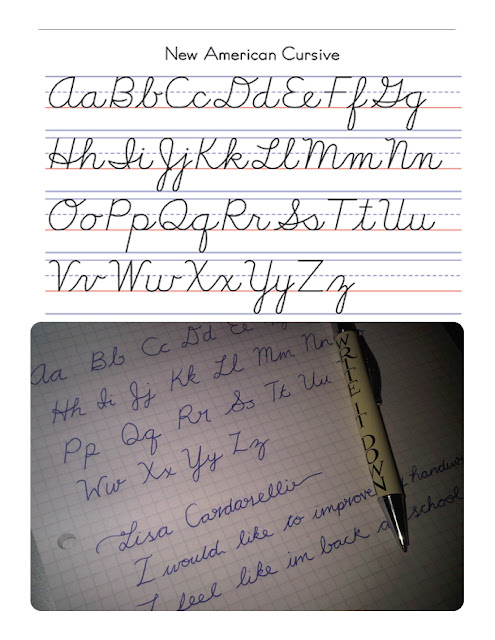 New American Cursive
AaBbCcDdEeFfGg
HhIiJjKkLlMmNn
OoPpQqRrSsTtUu
VvWwXxYyZz
Aa Bb Cc Dd Ee
Hh Ii Jj Kk Ll Mm Nn
Pp Qq Rr Ss Tt Uu
Ww Xx Yy Zz
Lisa Cardarelli
I would like to improve
I feel like im back school
WRITE IT DOWN